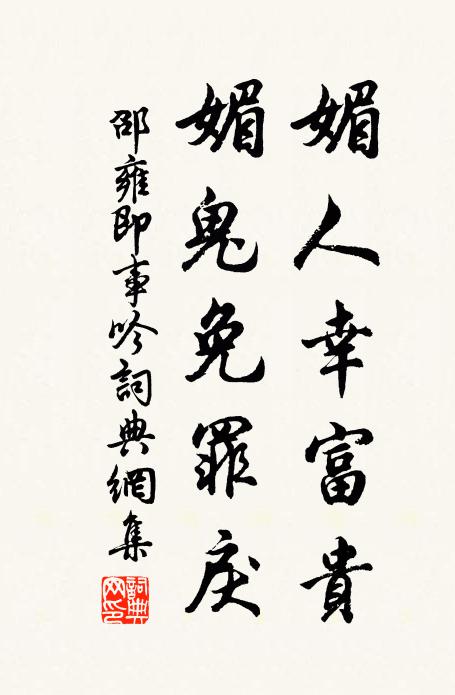 媚人幸富貴
媚鬼免罪戾
邵雍即事吟詞典網集
詞典網印